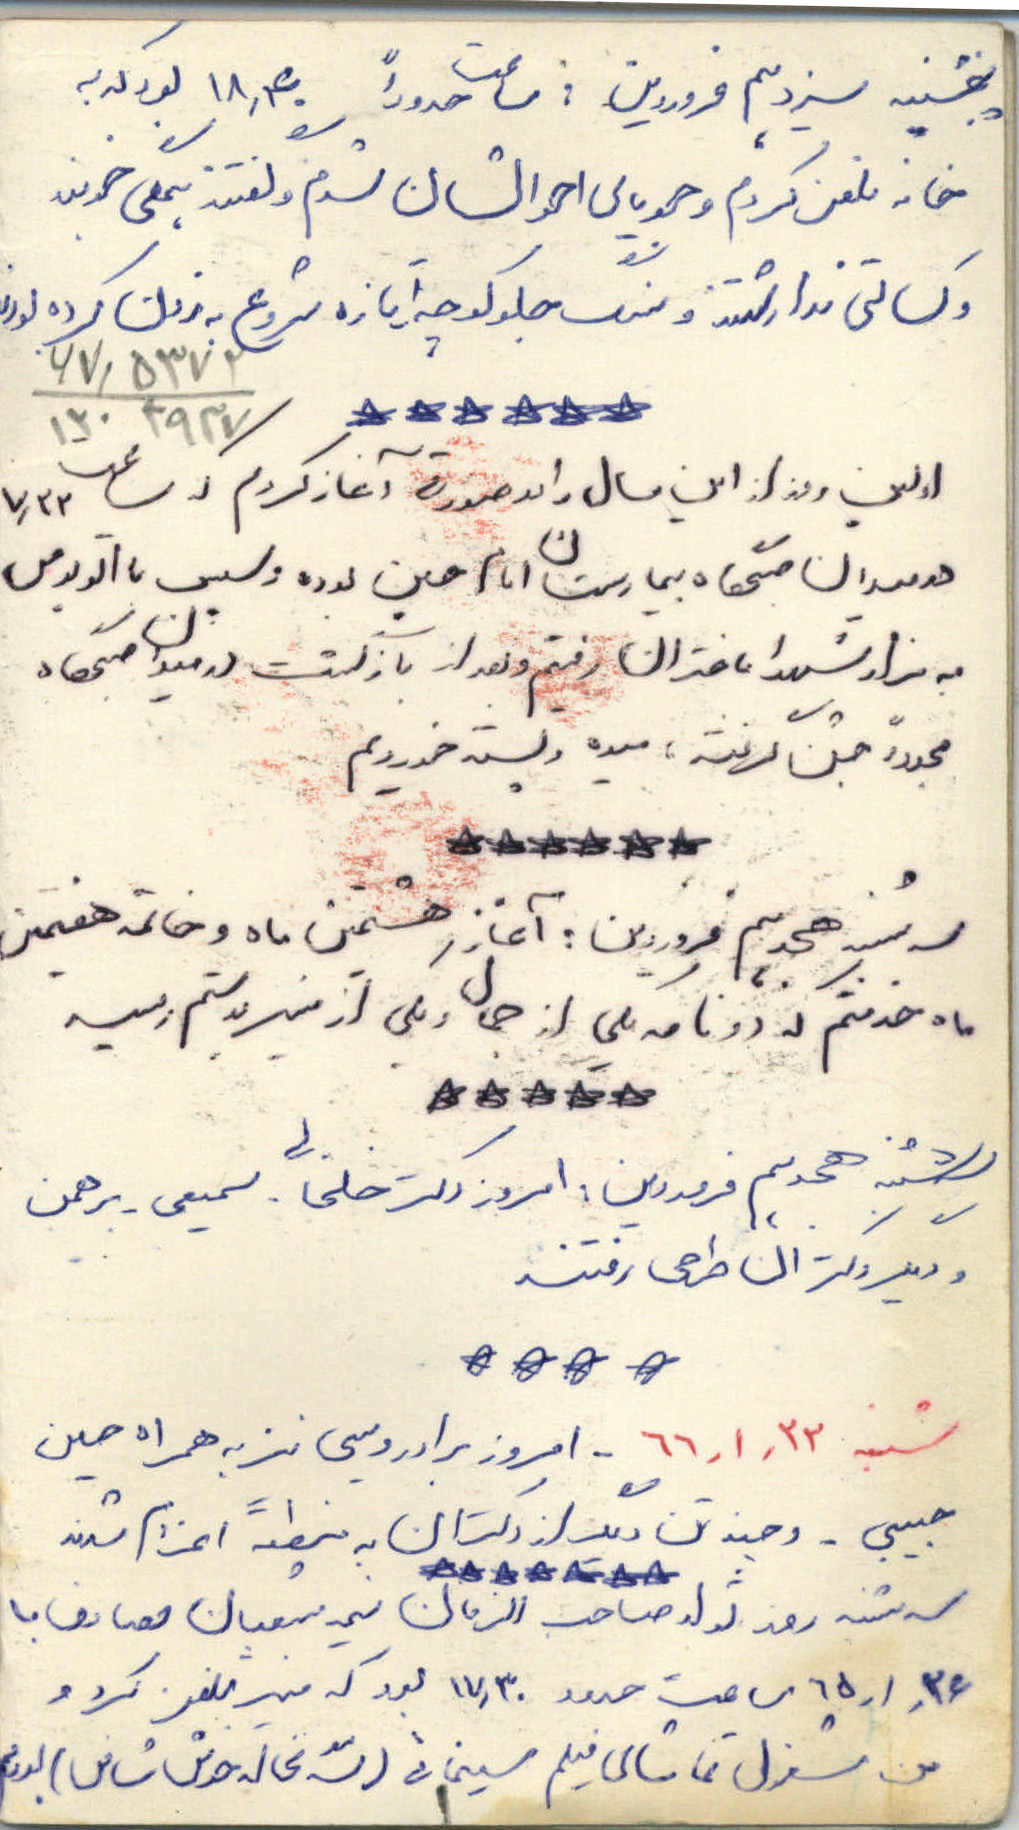 پنجشنبه سیزدهم فروردین : ساعت حدوداً ۱۸٫۳۰ بود که به
خانه تلفن کردم و جویای احوالشان شدم و گفتند همگی خوبند
و کسالتی نداشتند و جلو کوچه تازه شروع به کرده بودند
۶۷٫ ۵۳۷۲
۱۳۰ ۲۹۲۷
اولین روز از این سال را بدصورت آغاز کردم که ساعت ۷٫۲۳
در میدان صبحگاه بیمارستان امام حسین بوده و سپس با اتوبوس
به مزار شهدا باختران رفتیم و بعد از بازگشت در میدان صبحگاه
مجدداً جشن گرفته ، میوه و پسته خوردیم
سه شنبه هجدهم فروردین : آغاز هشتمین ماه و خاتمه هفتمین
ماه خدمتم که دو نامه یکی از جمال و یکی از منیر بدستم رسید
سه شنبه هجدهم فروردین : امروز دکتر خلخالی - سمیعی - برهمن
و دیگر دکتران طرحی رفتند
شنبه ۲۲٫ ۱٫ ۶۶ - امروز برادر ویسی نیز به همراه حسین
حبیبی - و چند تن دیگر از دکتران به منطقه اعزام شدند
سه شنبه روز تولد صاحب الزمان نیمه شعبان مصادف با
۲۶٫ ۱٫ ۶۵ ساعت حدود ۱۷٫۳۰ بود که منیر تلفن کرد و
من مشغول تماشای فیلم سینمائی ( ) بودم